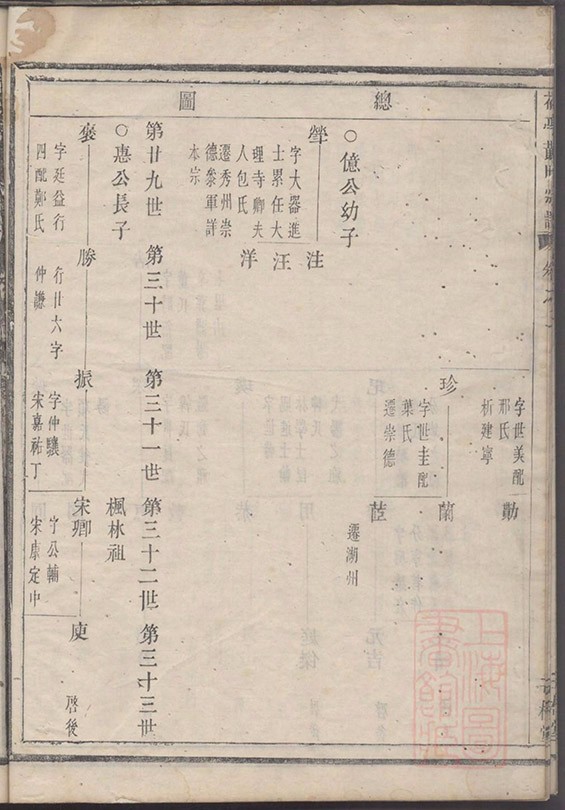 總圖
字世美配
邢氏
析建寧
勛
珍
字世圭配
葉氏
遷崇德
蘭
茝
遷湖州
○億公幼子
犖
字大器進
士累任大
理寺卿夫
人包氏
遷秀州崇
德叅軍詳
本宗
注
汪
洋
第廿九世
第三十世
第三十一世
第三十二世
第三十三世
○惪公長子
楓林祖
褒
字延益行
四配鄭氏
勝
行廿六字
仲謙
振
字仲驤
宋嘉祐丁
宋卿
字公輔
宋康定中
庾
啓後
上海圖書館藏